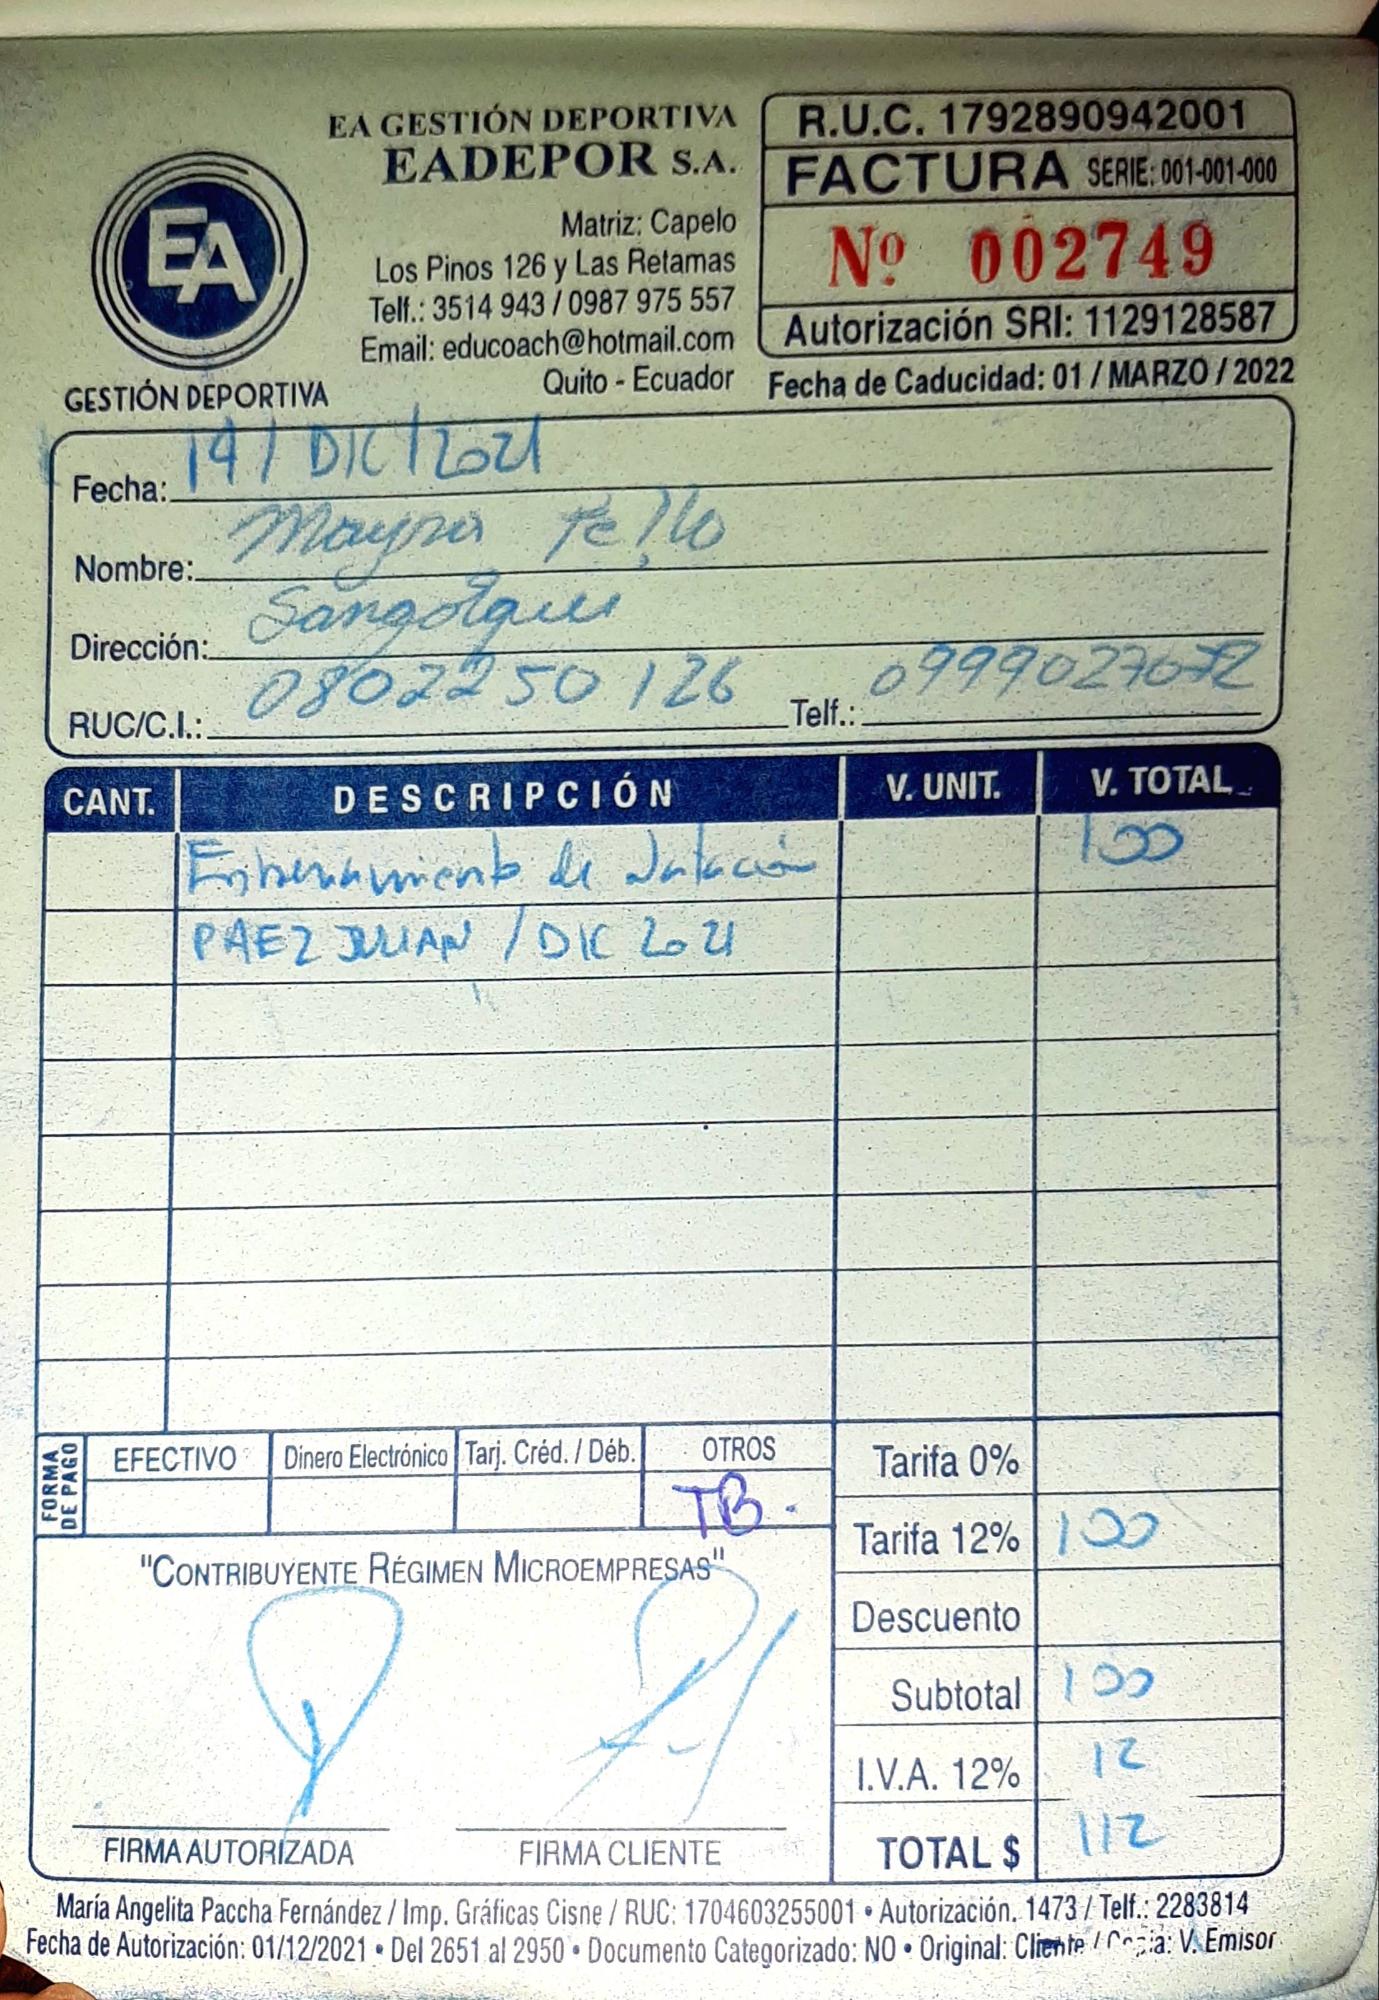 EA GESTIÓN DEPORTIVA
EADEPOR S.A.
Matriz: Capelo
Los Pinos 126 y Las Retamas
Telf.: 3514 943 / 0987 975 557
Email: educoach@hotmail.com
Quito - Ecuador
EA
GESTIÓN DEPORTIVA
R.U.C. 1792890942001
FACTURA SERIE: 001-001-000
Nº 002749
Autorización SRI: 1129128587
Fecha de Caducidad: 01 / MARZO / 2022
Fecha: 14 / DIC / 2021
Nombre: Mayra Tello
Dirección: Sangolqui
RUC/C.I.: 0802250126 Telf.: 0999027072
CANT. DESCRIPCIÓN V. UNIT. V. TOTAL
Entrenamiento de Natación 100
PAEZ JULIAN / DIC 2021
FORMA DE PAGO
EFECTIVO Dinero Electrónico Tarj. Créd. / Déb. OTROS
TB.
Tarifa 0%
Tarifa 12% 100
Descuento
Subtotal 100
I.V.A. 12% 12
TOTAL $ 112
"CONTRIBUYENTE RÉGIMEN MICROEMPRESAS"
FIRMA AUTORIZADA FIRMA CLIENTE
María Angelita Paccha Fernández / Imp. Gráficas Cisne / RUC: 1704603255001 • Autorización. 1473 / Telf.: 2283814
Fecha de Autorización: 01/12/2021 • Del 2651 al 2950 • Documento Categorizado: NO • Original: Cliente / Copia: V. Emisor